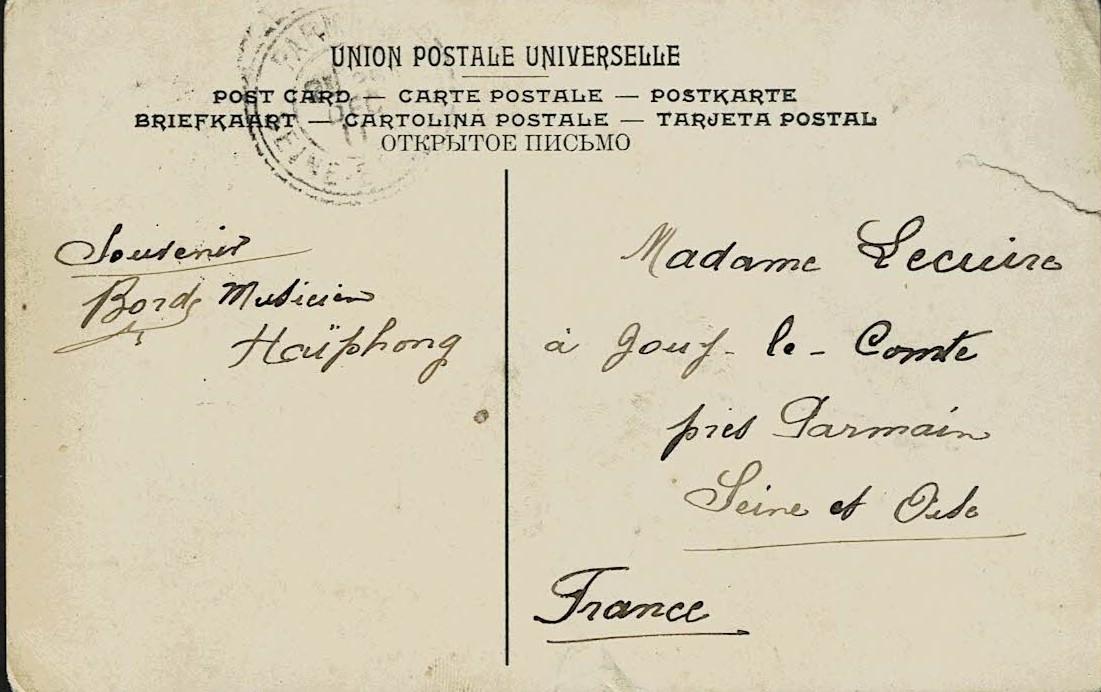 UNION POSTALE UNIVERSELLE
POST CARD — CARTE POSTALE — POSTKARTE
BRIEFKAART — CARTOLINA POSTALE — TARJETA POSTAL
ОТКРЫТОЕ ПИСЬМО
Souvenir
Bords Musicien
Haïphong
Madame Lecuire
à Jouy-le-Comte
près Parmain
Seine et Oise
France